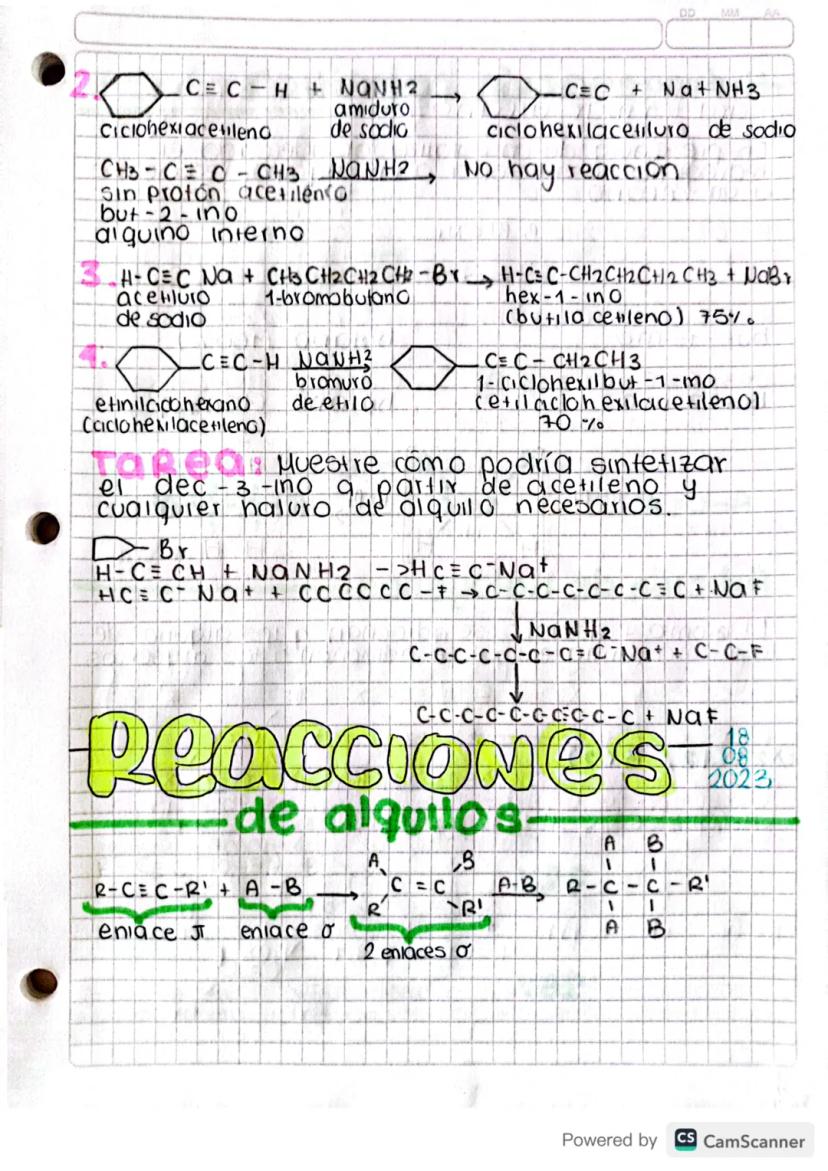 DD MM AA
2. C≡C-H + NaNH2 → C≡C + Na+NH3
amiduro
ciclohexiacetileno de sodio ciclohexilacetiluro de sodio
CH3-C≡C-CH3 NaNH2 → No hay reacción
sin protón acetilénico
but-2-ino
alquino interno
3. H-C≡C Na + CH3CH2CH2CH2-Br → H-C≡C-CH2CH2CH2CH3 + NaBr
acetiluro 1-bromobutano hex-1-ino
de sodio (butilacetileno) 75%
4. C≡C-H NaNH2 → C≡C-CH2CH3
bromuro 1-ciclohexilbut-1-ino
etinilciclohexano de etilo (etilciclohexilacetileno)
(ciclohexilacetileno) 70%
Tarea: Muestre cómo podría sintetizar
el dec-3-ino a partir de acetileno y
cualquier haluro de alquilo necesarios.
Br
H-C≡CH + NaNH2 -> HC≡C-Na+
HC≡C-Na+ + CCCCCC-F → C-C-C-C-C-C-C≡C + NaF
↓ NaNH2
C-C-C-C-C-C-C≡C-Na+ + C-C-F
↓
C-C-C-C-C-C-C≡C-C-C + NaF
Reacciones
18
08
2023
de alquilos
A B
A B
R-C≡C-R' + A-B → C=C A-B → R-C-C-R'
R R'
enlace π enlace σ A B
2 enlaces σ
Powered by CS CamScanner